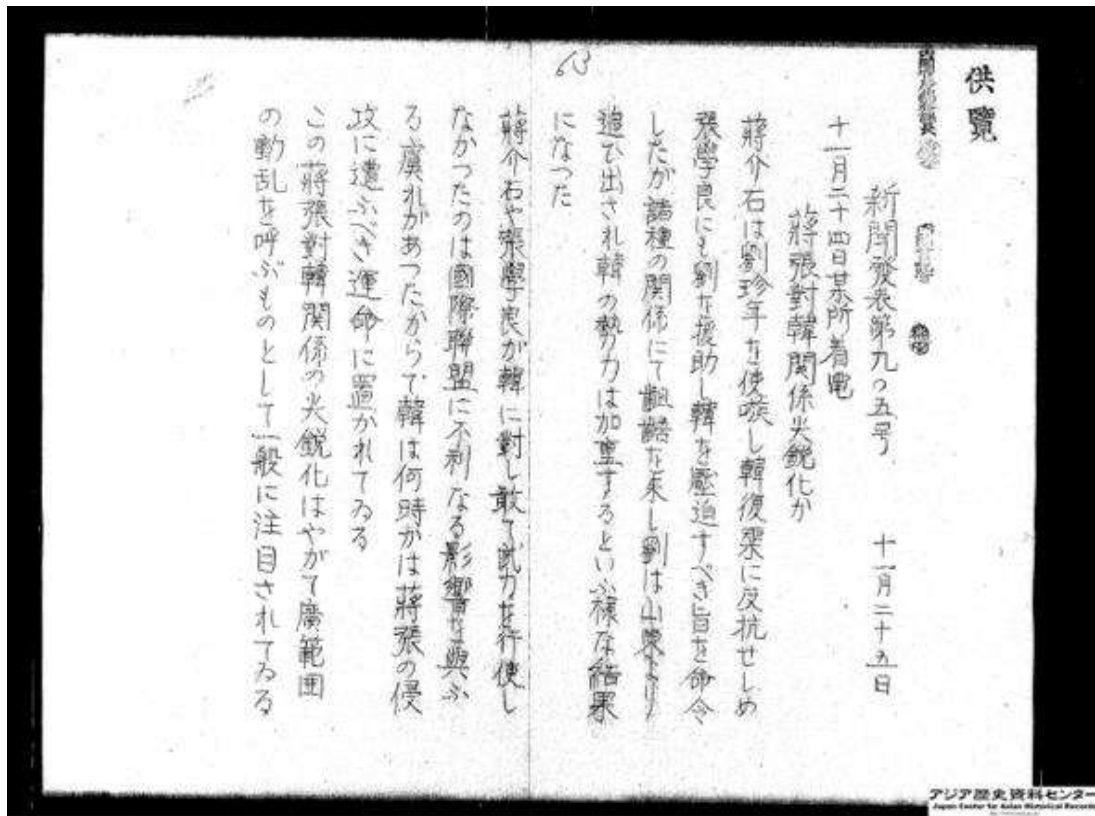 供覽
新聞發表第九〇五号　十一月二十五日
十一月二十四日某所着電
蔣張對韓関係尖鋭化か
蔣介石は劉珍年を使嗾し韓復渠に反抗せしめ
張學良にも劉を援助し韓を壓迫すべき旨を命令
したが諸種の関係にて齟齬を来し劉は山東より
追ひ出され韓の勢力は加重するといふ様な結果
になつた
蔣介石や張學良が韓に對し敢て武力を行使し
なかつたのは國際聯盟に不利なる影響を與ふ
る虞れがあつたからで韓は何時かは蔣張の侵
攻に遭ふべき運命に置かれてゐる
この蔣張對韓関係の尖鋭化はやがて廣範囲
の動乱を呼ぶものとして一般に注目されてゐる
アジア歴史資料センター
Japan Center for Asian Historical Records